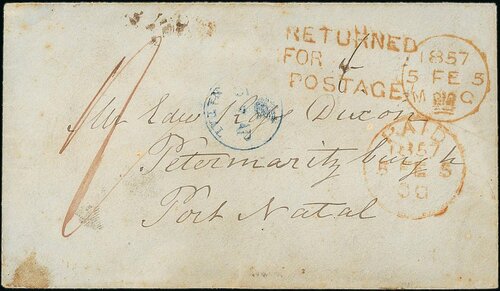 RETURNED
FOR
POSTAGE
1857
5 FE 5
PAID
1857
5 FE 5
Mr Edw
Petermaritzburgh
Port Natal